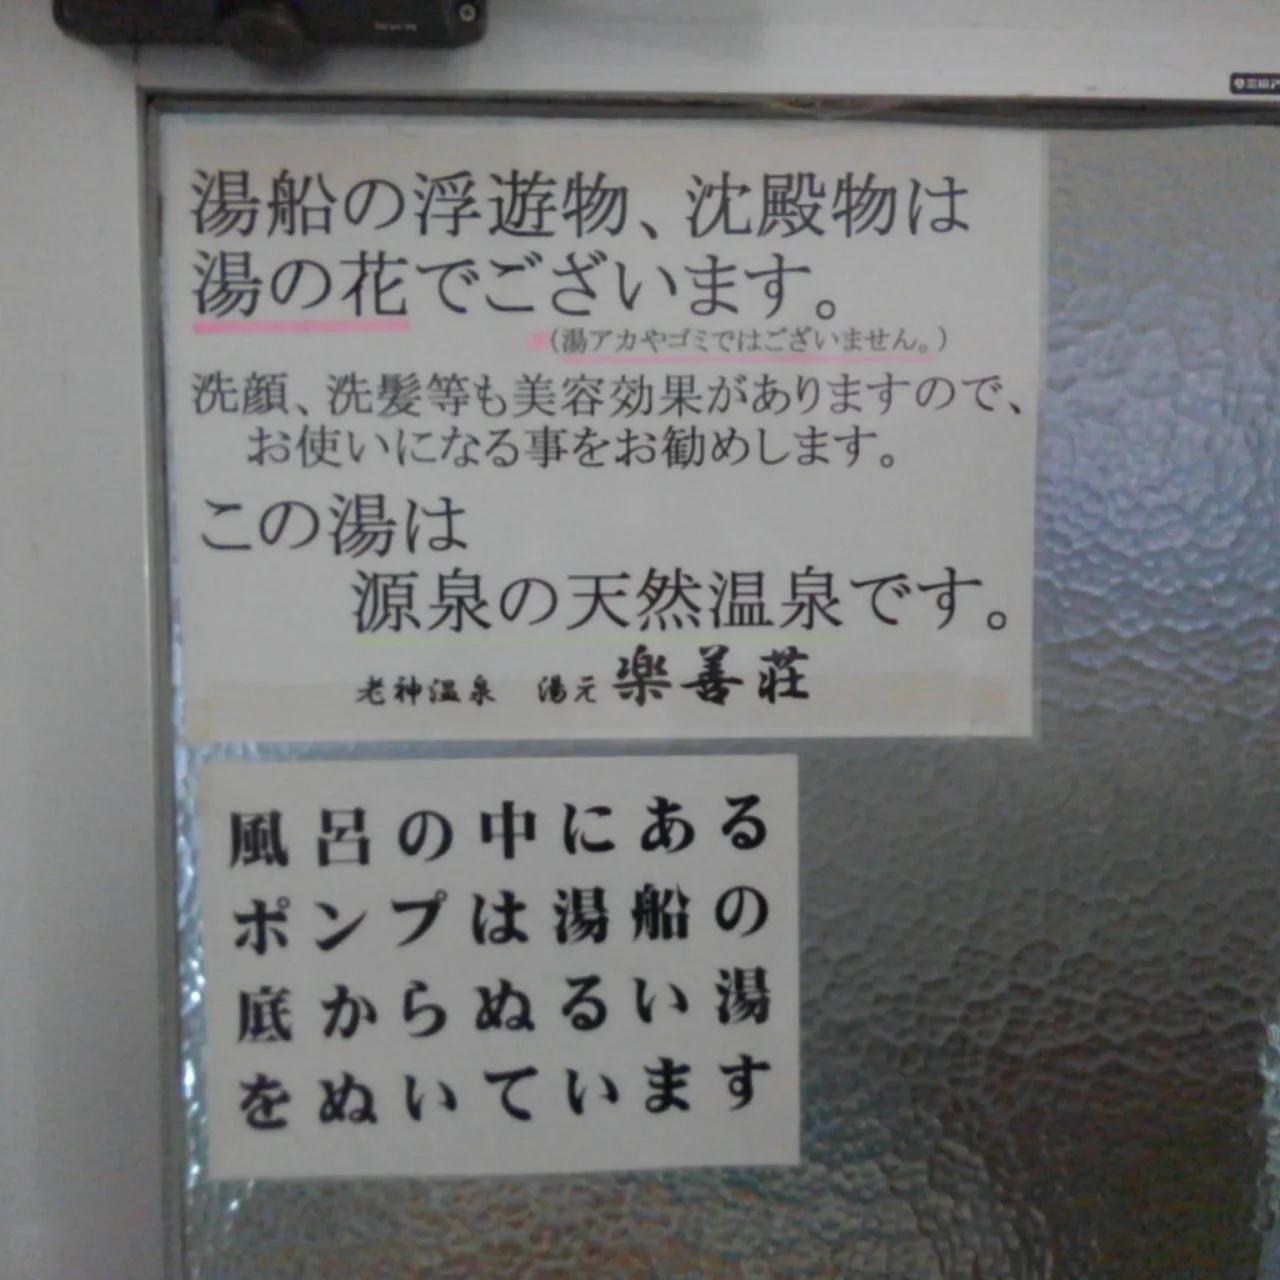 湯船の浮遊物、沈殿物は
湯の花でございます。
(湯アカやゴミではございません。)
洗顔、洗髪等も美容効果がありますので、
お使いになる事をお勧めします。
この湯は
源泉の天然温泉です。
老神温泉 湯元 楽善荘
風呂の中にある
ポンプは湯船の
底からぬるい湯
をぬいています